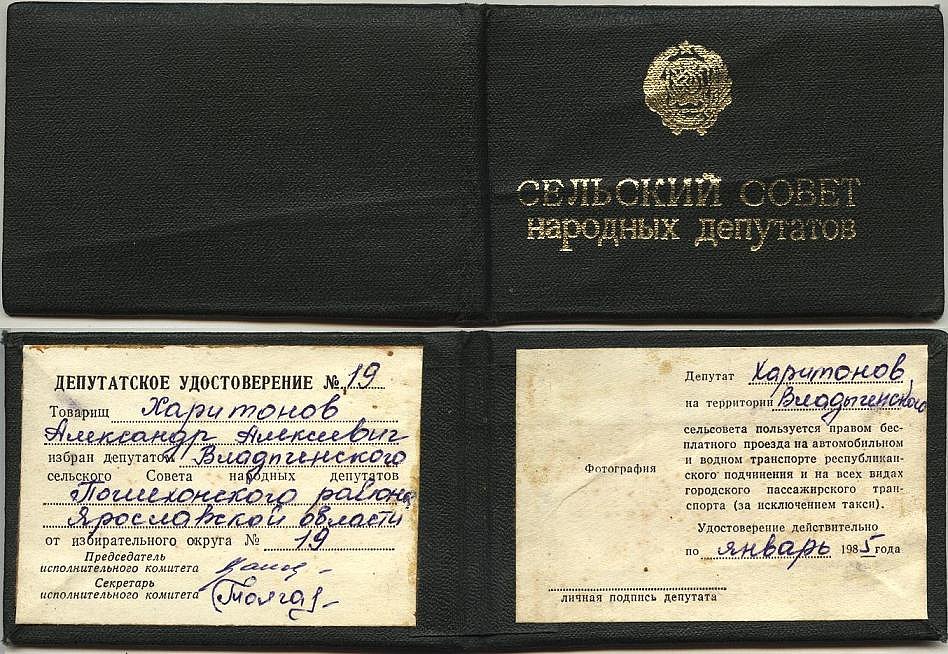 СЕЛЬСКИЙ СОВЕТ
народных депутатов
ДЕПУТАТСКОЕ УДОСТОВЕРЕНИЕ № 19
Товарищ Харитонов
Александр Алексеевич
избран депутатом Владыченского
сельского Совета народных депутатов
Пошехонского района
Ярославской области
от избирательного округа № 19
Председатель
исполнительного комитета
Секретарь
исполнительного комитета
Депутат Харитонов
на территории Владыченского
сельсовета пользуется правом бес-
платного проезда на автомобильном
и водном транспорте республикан-
ского подчинения и на всех видах
городского пассажирского тран-
спорта (за исключением такси).
Фотография
Удостоверение действительно
по январь 1985 года
личная подпись депутата